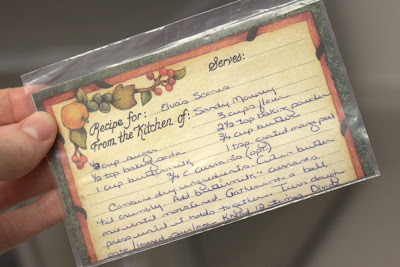 Serves:
Recipe for: Elva's Scones
From the Kitchen of: Sandy Mowrey
3 cups flour
1/3 cup sugar 2 1/2 tsp baking powder
1/2 tsp baking soda 3/4 cup butter
1 cup buttermilk 1 tsp grated orange peel
3/4 c. currants (opt)
Combine dry ingredients. Cut in butter
til crumbly. Add buttermilk & currants.
mix until moistened. Gather into a ball,
press until it holds together. Turn dough
onto floured surface. Knead 12 times. Divide